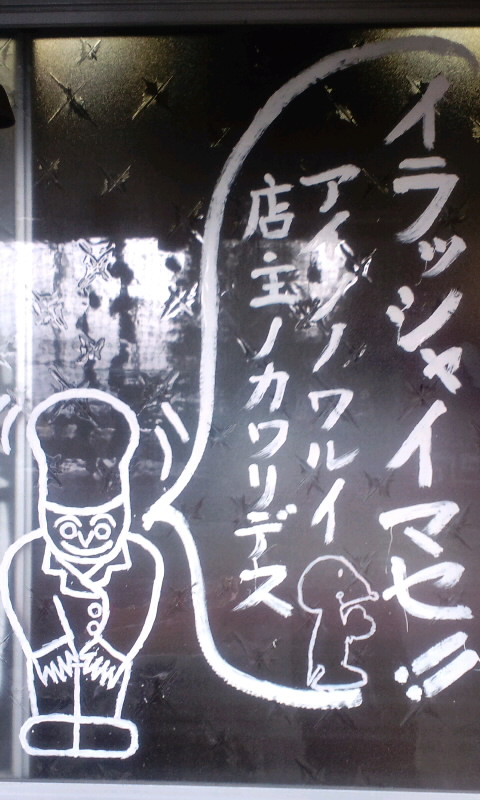 イラッシャイマセ!!
アイソノワルイ
店主ノカワリデス